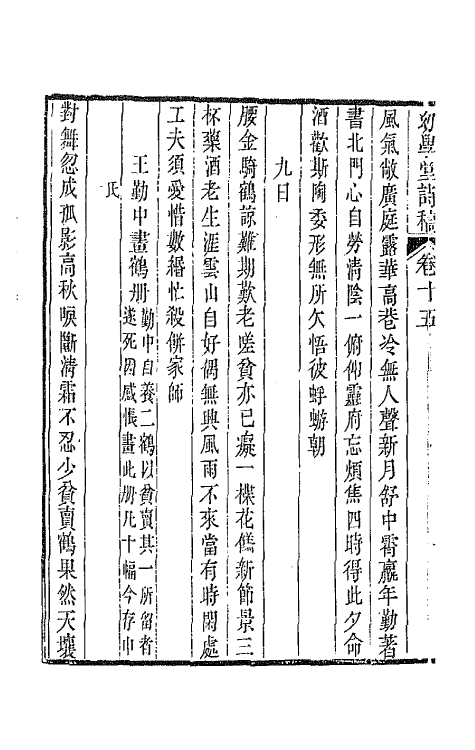 幼學堂詩稿 卷十五
風氣敞廣庭露華高巷冷無人聲新月舒中霄嬴年勤著
書北門心自勞清陰一俯仰靈府忘煩焦四時得此夕命
酒歡斯陶委形無所欠悟彼蜉蝣朝
九日
腰金騎鶴諒難期歎老嗟貧亦已癡一楪花餻新節景三
杯藥酒老生涯雲山自好偶無興風雨不來當有時閑處
工夫須愛惜數緡忙殺併家師
王勤中畫鶴册勤中自養二鶴以貧賣其一所留者
遂死因感悵畫此册凡十幅今存巾
氏
對舞忽成孤影高秋唳斷清霜不忍少貧賣鶴果然天壤